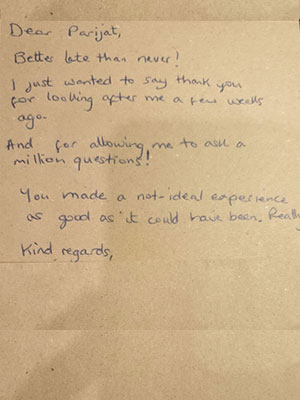 Dear Parijat,
Better late than never!
I just wanted to say thank you
for looking after me a few weeks
ago.
And for allowing me to ask a
million questions!
You made a not-ideal experience
as good as it could have been. Really
Kind regards,